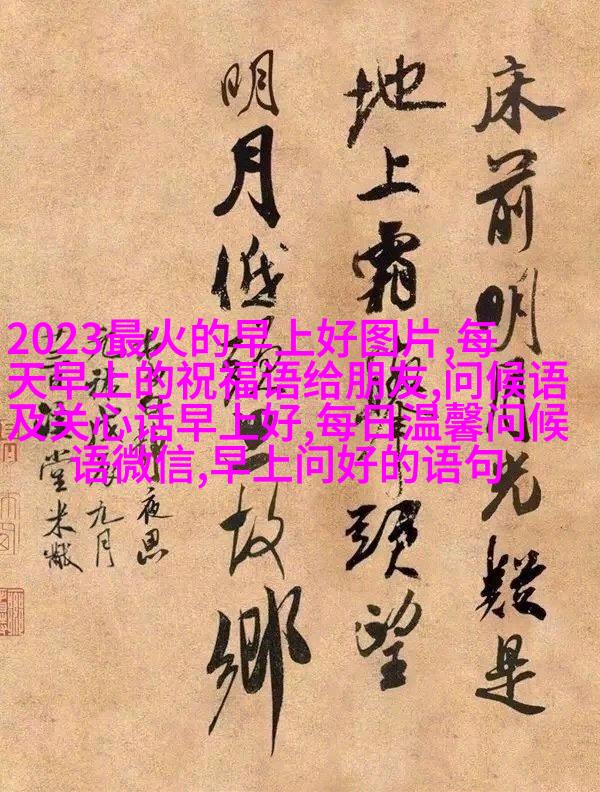 床前明月光疑是
地上霜舉頭望
明月低頭思故鄉
夜思
九月
堂米黻
2023最火的早上好图片,每
天早上的祝福语给朋友,问候语
及关心话早上好,每日温馨问候
语微信,早上问好的语句